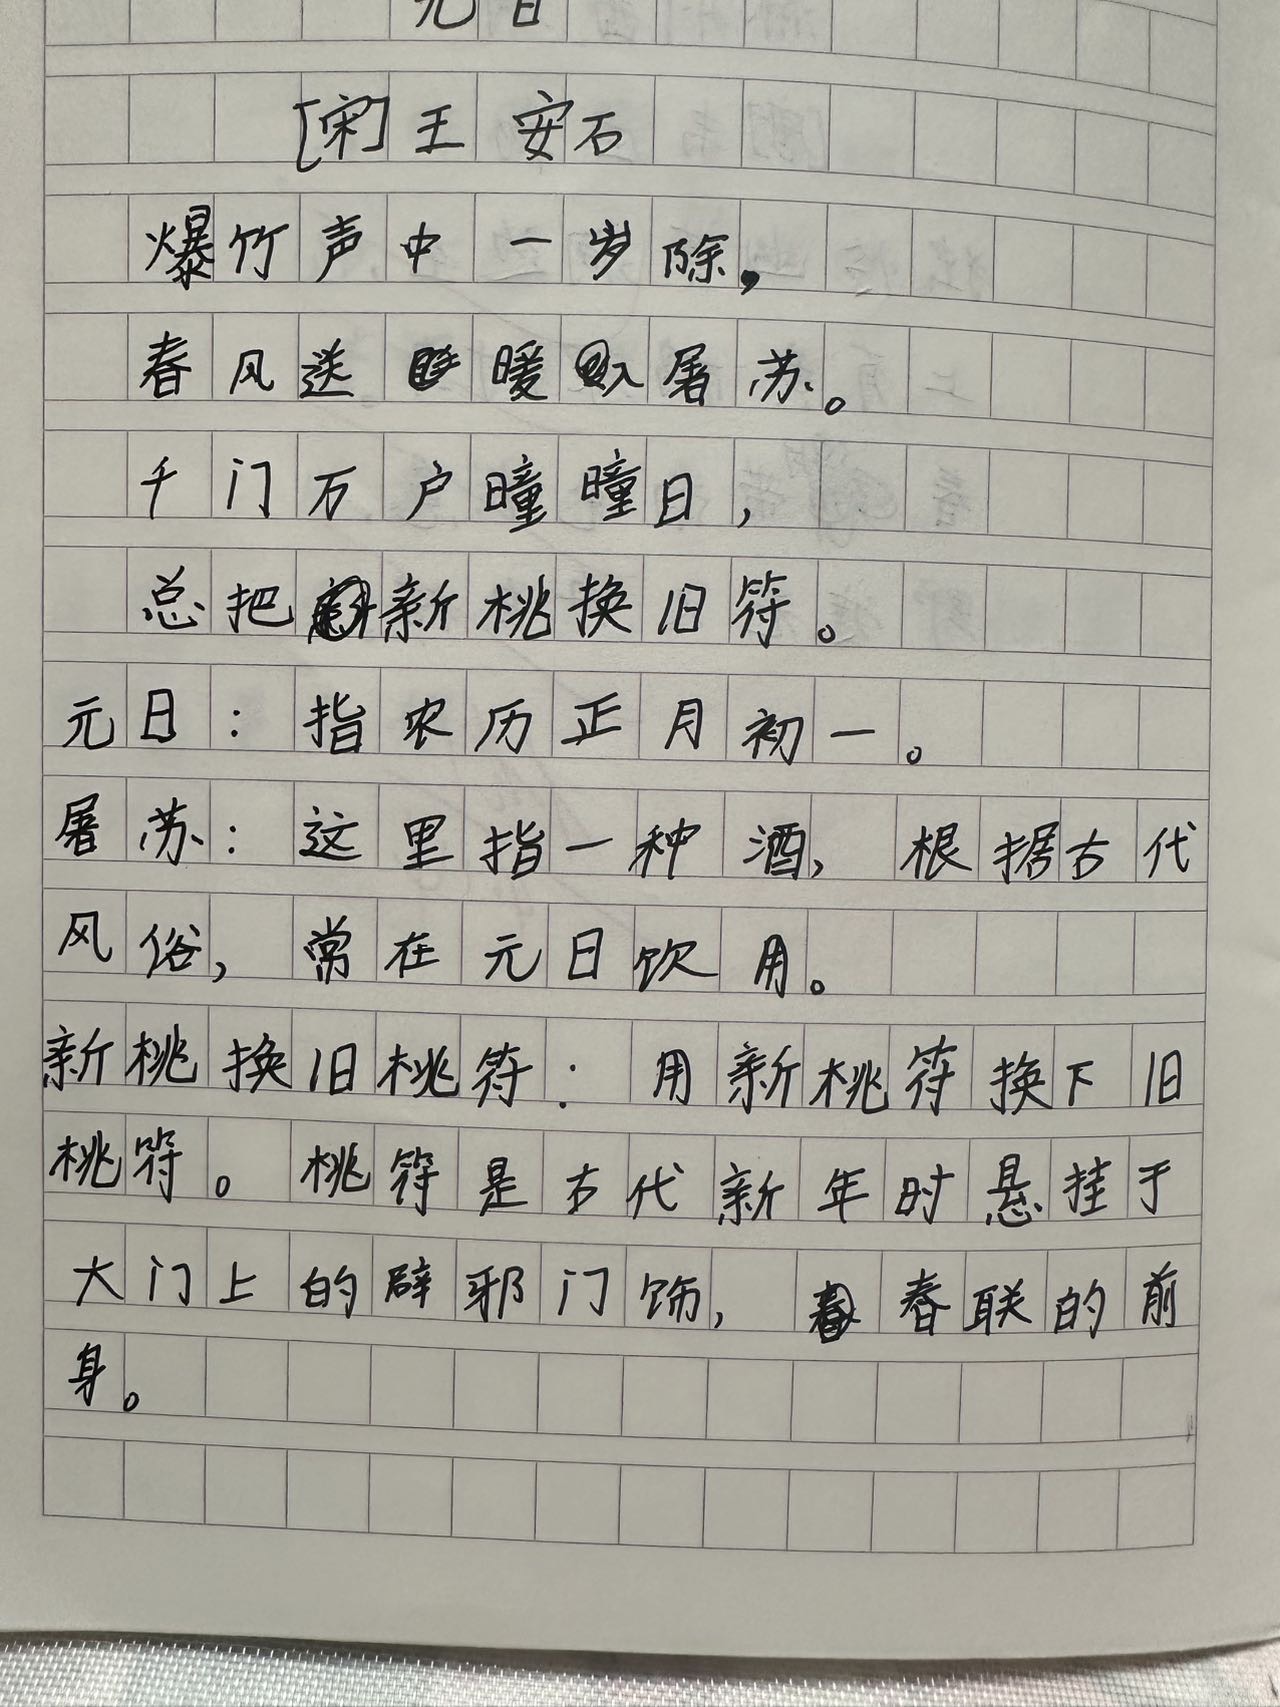 元日
[宋]王安石
爆竹声中一岁除，
春风送暖入屠苏。
千门万户曈曈日，
总把新桃换旧符。
元日：指农历正月初一。
屠苏：这里指一种酒，根据古代
风俗，常在元日饮用。
新桃换旧桃符：用新桃符换下旧
桃符。桃符是古代新年时悬挂于
大门上的辟邪门饰，春联的前
身。